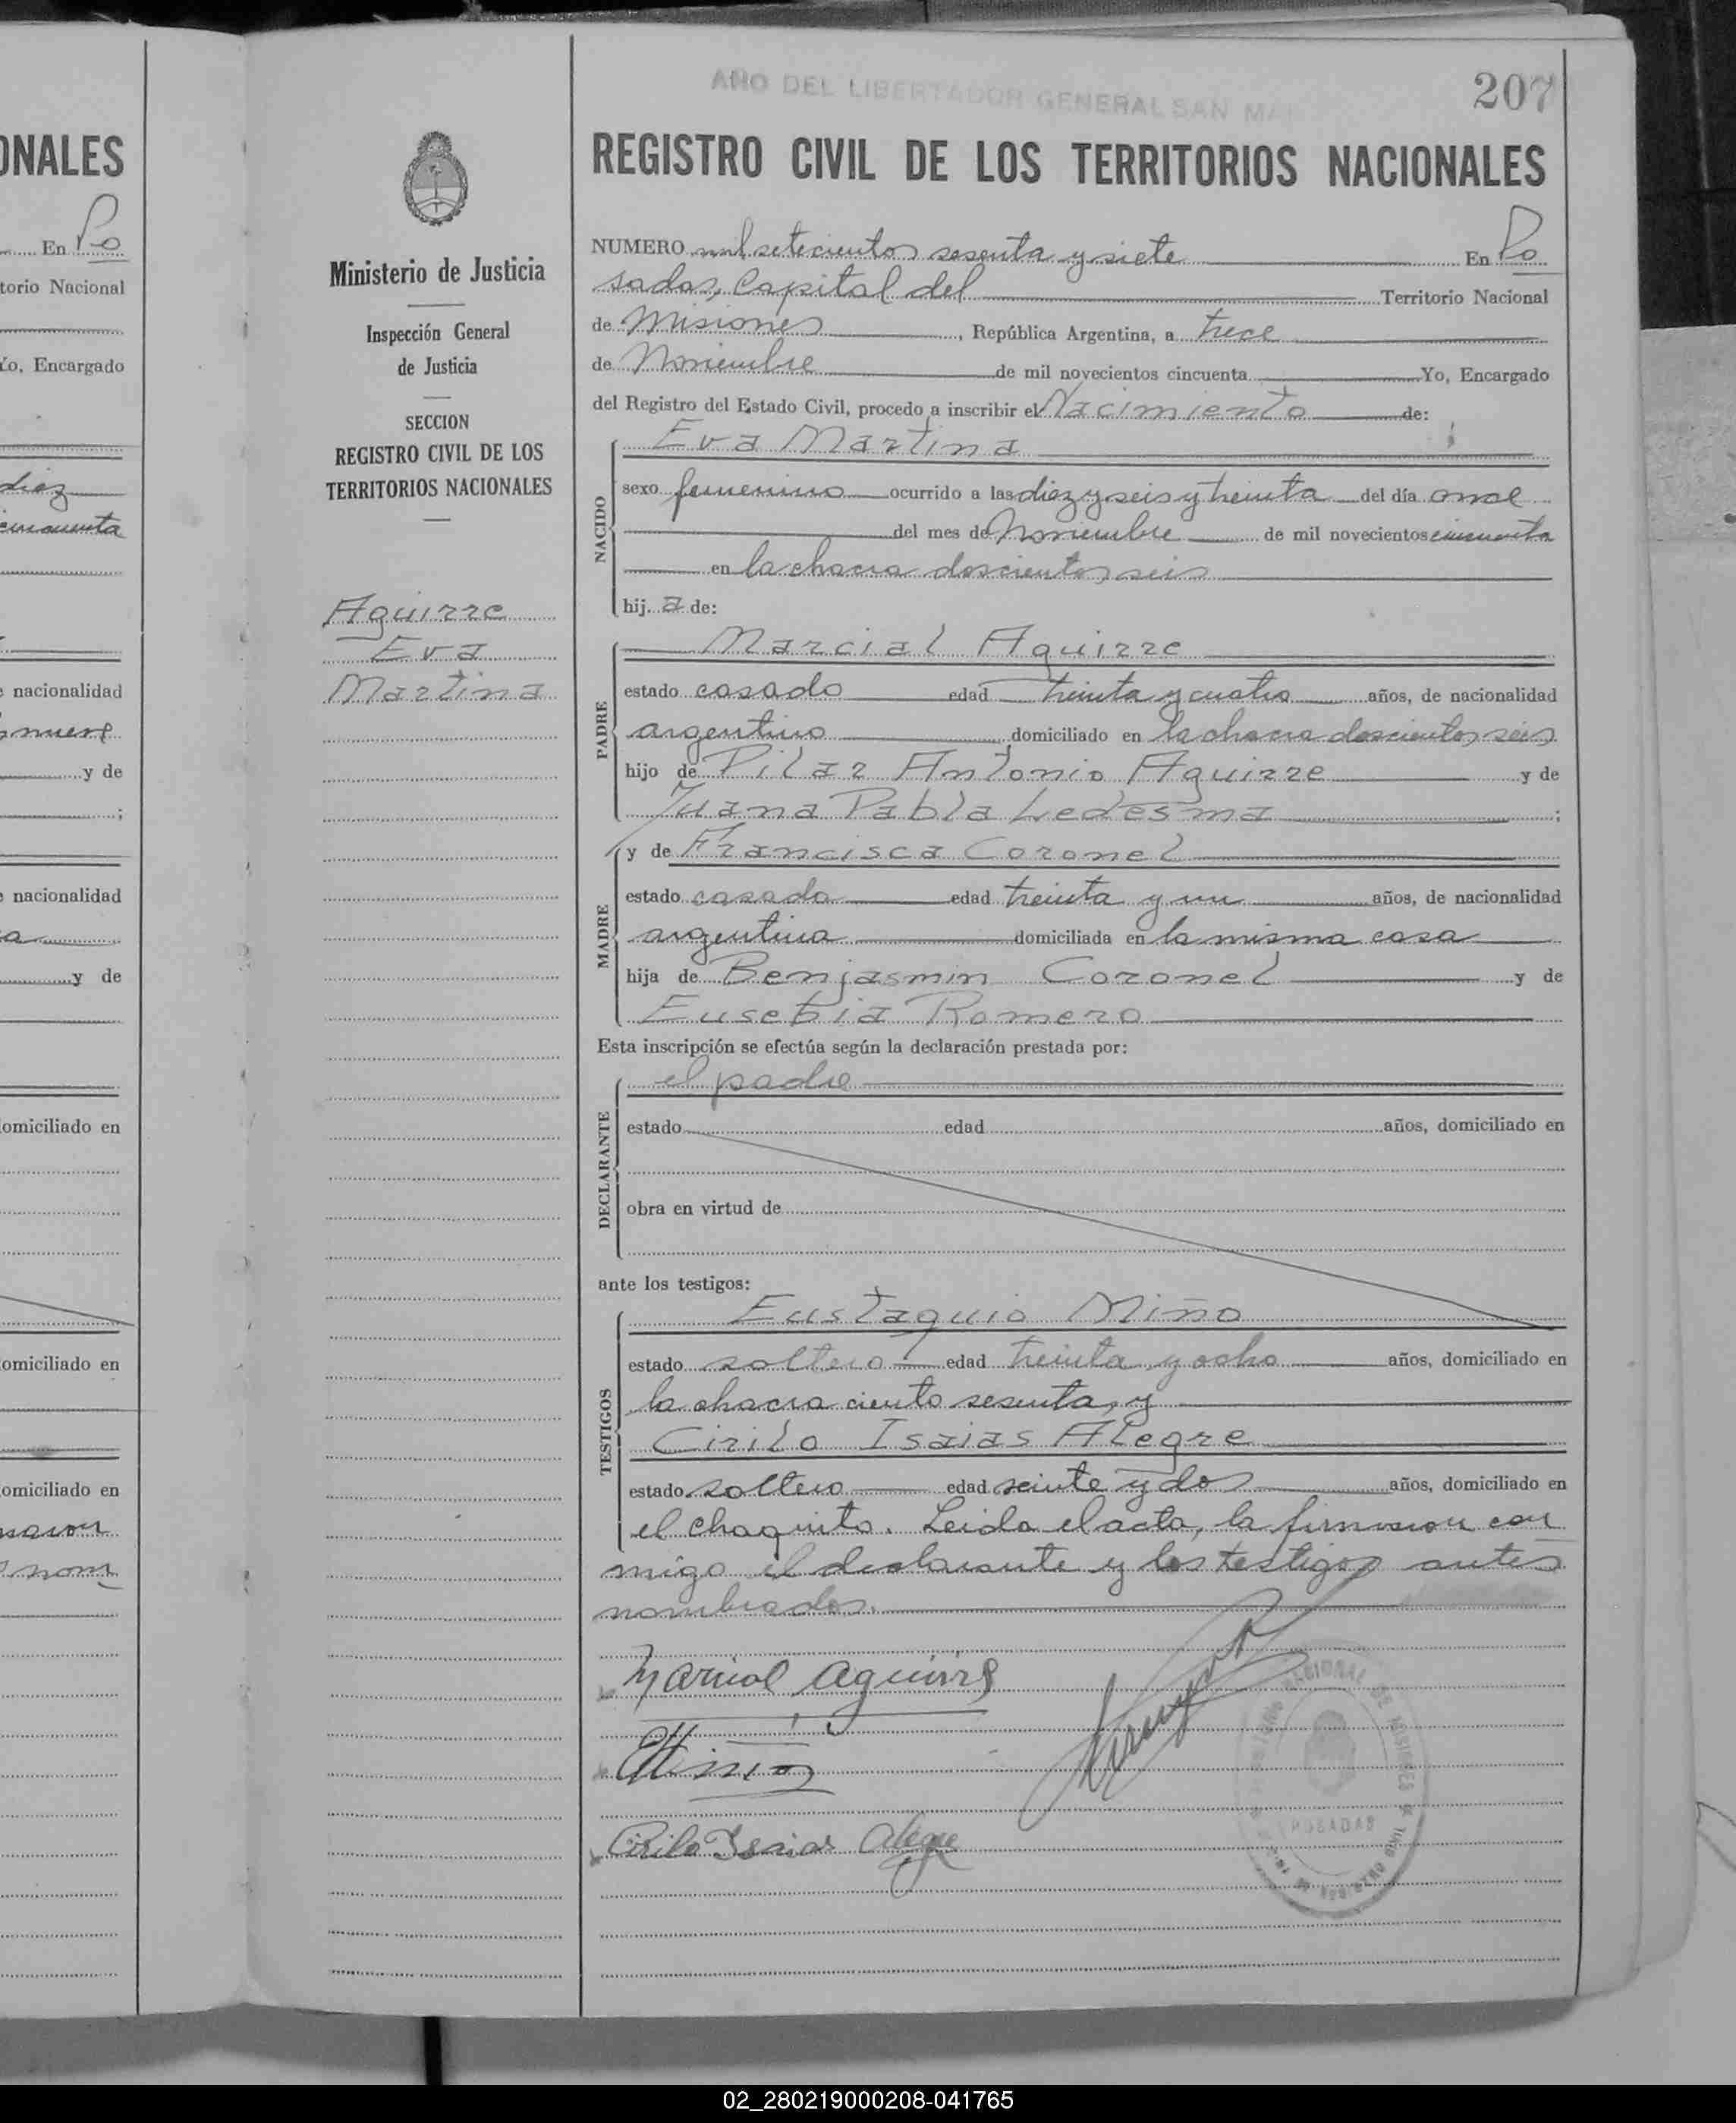 AÑO DEL LIBERTADOR GENERAL SAN MA
207
REGISTRO CIVIL DE LOS TERRITORIOS NACIONALES
NUMERO mil setecientos sesenta y siete En Po
sadas, Capital del Territorio Nacional
de Misiones, República Argentina, a trece
de Noviembre de mil novecientos cincuenta Yo, Encargado
del Registro del Estado Civil, procedo a inscribir el Nacimiento de:
NACIDO
Eva Martina
sexo femenino ocurrido a las diez y seis y treinta del día once
del mes de Noviembre de mil novecientos cincuenta
en la chacra doscientos seis
hij a de:
PADRE
Marcial Aguirre
estado casado edad treinta y cuatro años, de nacionalidad
argentino domiciliado en la chacra doscientos seis
hijo de Pilar Antonio Aguirre y de
Juana Pabla Ledesma ;
MADRE
y de Francisca Coronel
estado casada edad treinta y un años, de nacionalidad
argentina domiciliada en la misma casa
hija de Benjasmin Coronel y de
Eusebia Romero
Esta inscripción se efectúa según la declaración prestada por:
DECLARANTE
el padre
estado edad años, domiciliado en
obra en virtud de
ante los testigos:
TESTIGOS
Eustaquio Miño
estado soltero edad treinta y ocho años, domiciliado en
la chacra ciento sesenta, y
Cirilo Isaias Alegre
estado soltero edad veinte y dos años, domiciliado en
el chaquito. Leida el acta, la firmaron con
migo el declarante y los testigos antes
nombrados.
Marcial Aguirre
EMiño
Cirilo Isaias Alegre
POSADAS
Ministerio de Justicia
Inspección General
de Justicia
SECCION
REGISTRO CIVIL DE LOS
TERRITORIOS NACIONALES
Aguirre
Eva
Martina
ONALES
En Po
torio Nacional
Yo, Encargado
diez
cincuenta
nacionalidad
y de
;
nacionalidad
y de
omiciliado en
omiciliado en
omiciliado en
02_280219000208-041765